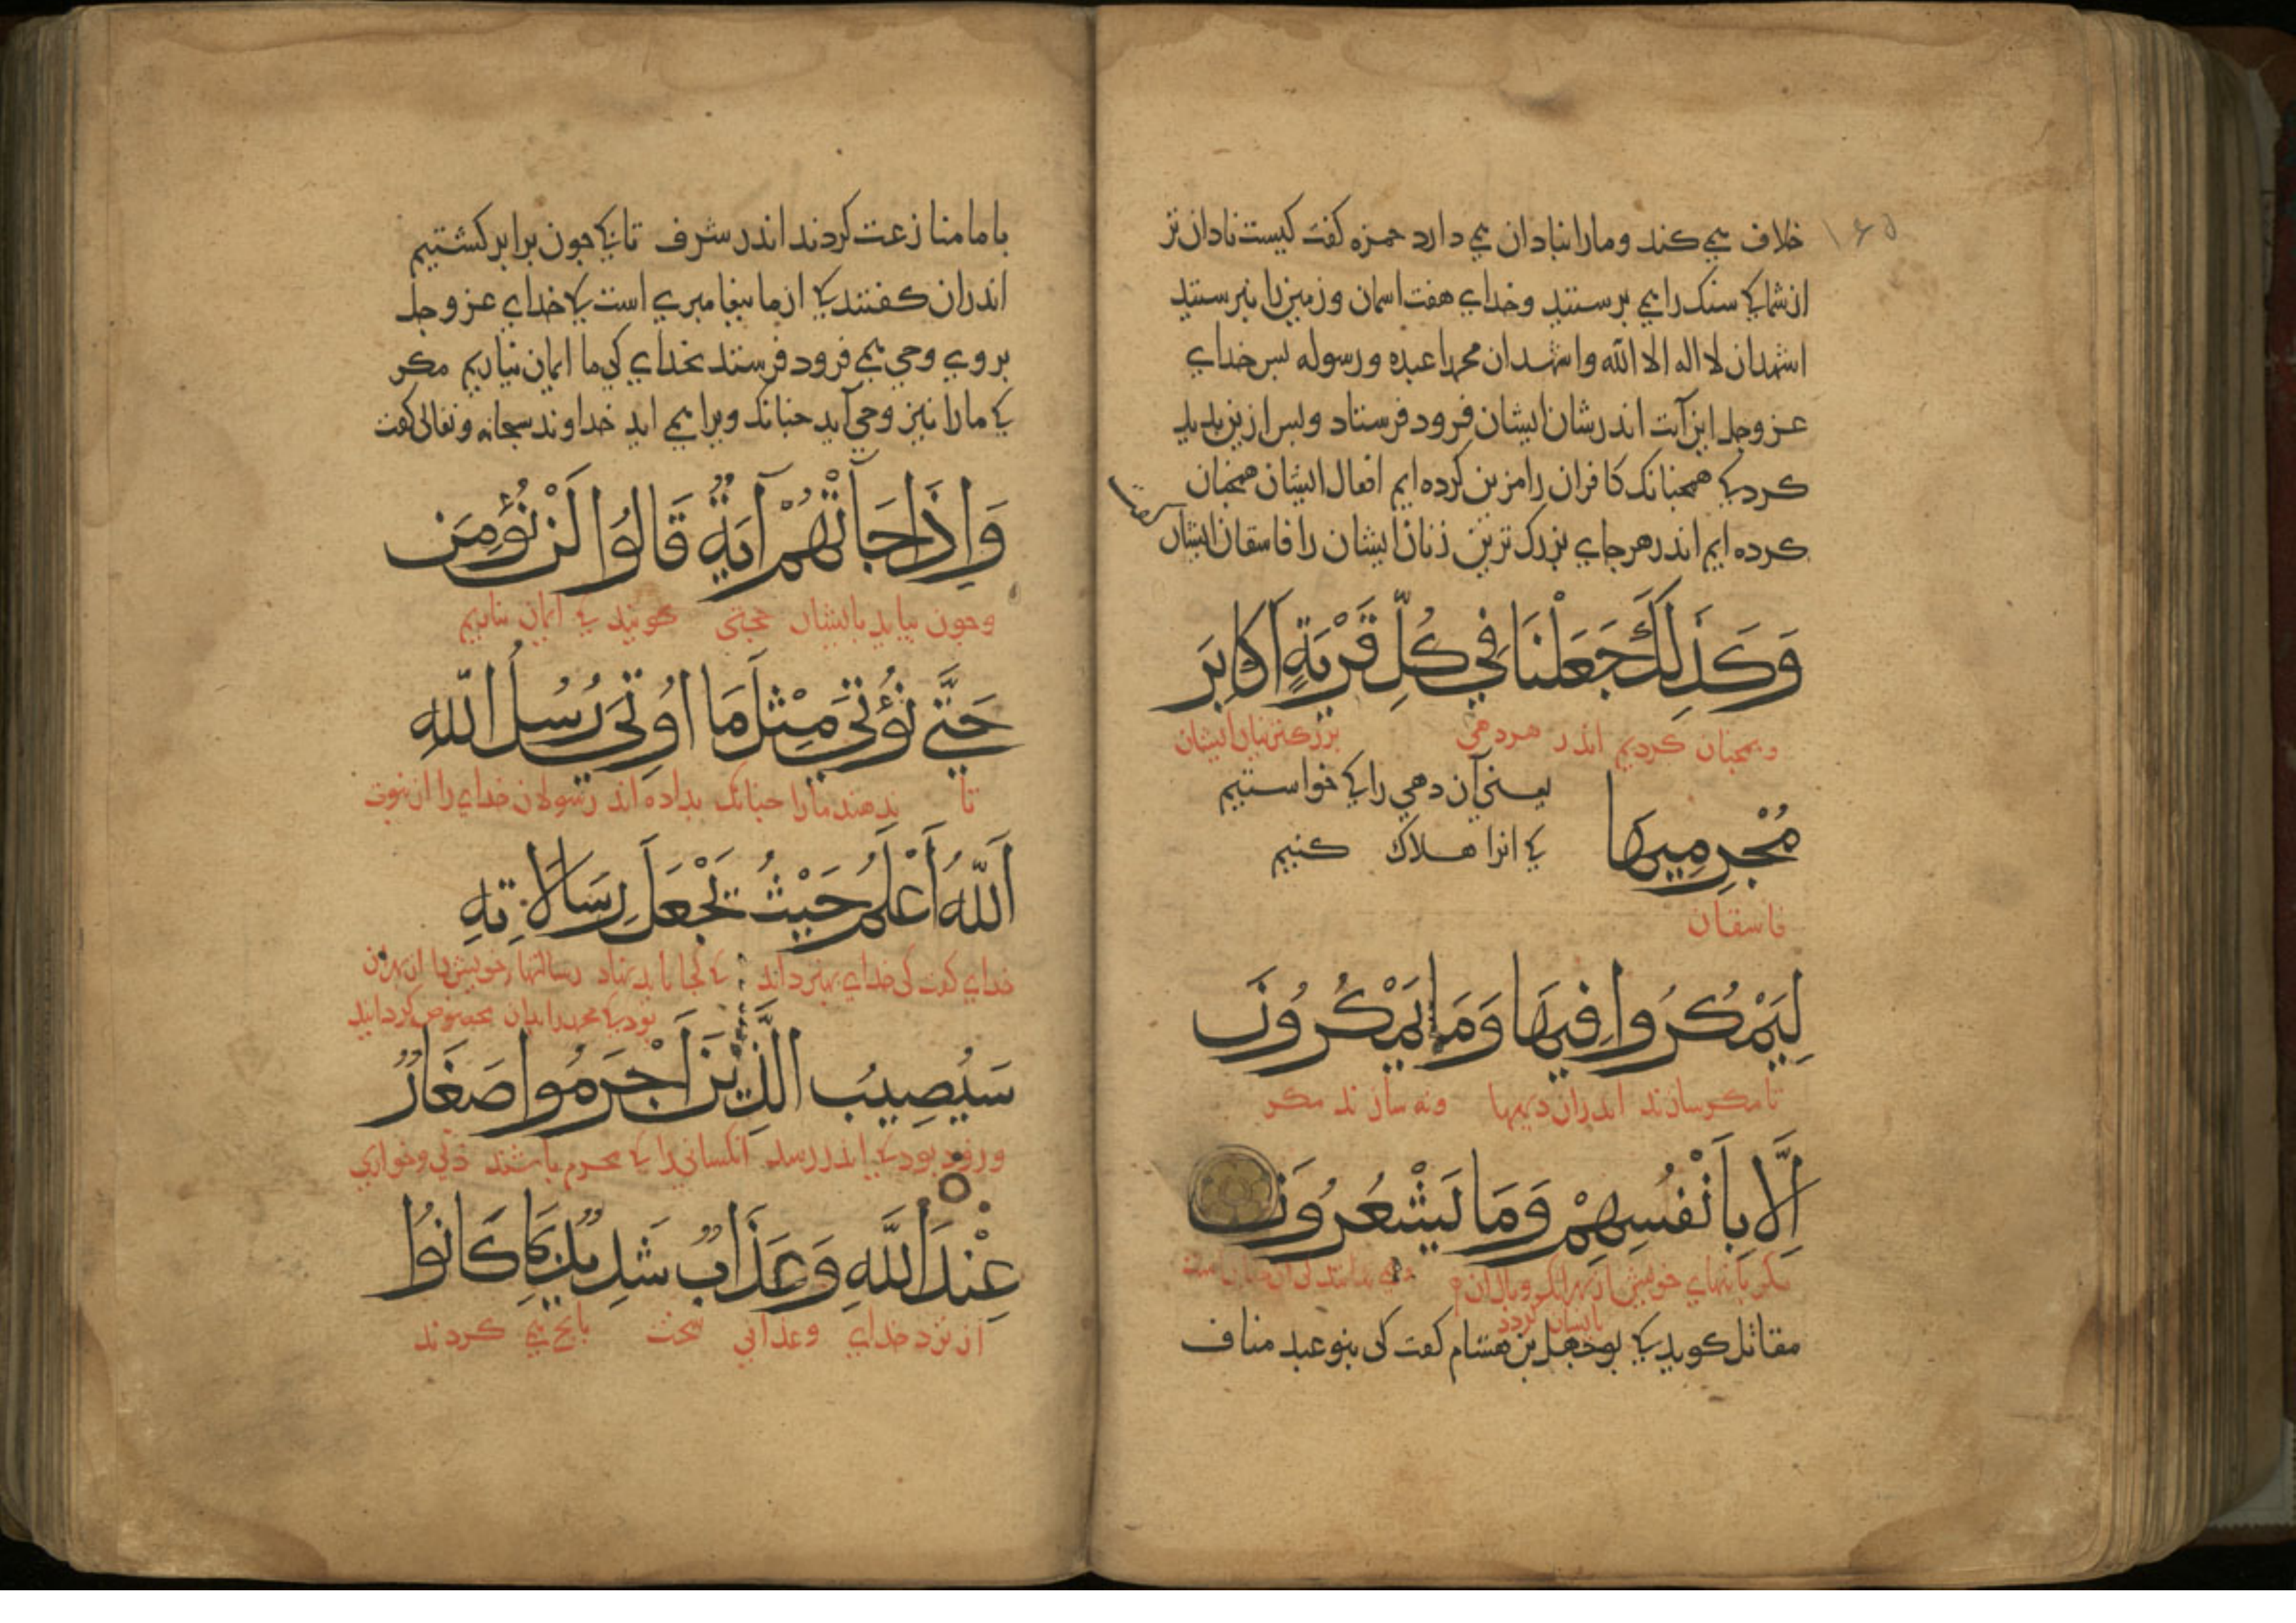 ۱۶۵
خلاف می کند و مارا بنادان می دارد حمزه کفت کیست نادان تر
از شما کی سنک را می برستید و خدای هفت اسمان و زمین را نبرستید
اشهد ان لا اله الا الله واشهد ان محمدا عبده و رسوله بس خدای
عز وجل این آیت اندر شان ایشان فرود فرستاد و بس ازین بدید
کرد کی همجنانک کافران را مزین کرده ایم افعال ایشان همجنان
کرده ایم اندر هر جای بزرک ترین زنان ایشان را فاسقان ایشان
وَكَذَلِكَ جَعَلْنَا فِي كُلِّ قَرْيَةٍ اَكَابِرَ
و همجنان کردیم اندر هر دهی بزرکترینان ایشان
مُجْرِمِيهَا
یعنی آن دهی را کی خواستیم
کی انرا هلاک کنیم
فاسقان
لِيَمْكُرُوا فِيهَا وَمَا يَمْكُرُونَ
تا مکر سازند اندران دیهها ونه سازند مکر
اِلَّا بِاَنْفُسِهِمْ وَمَا يَشْعُرُونَ
مکر با تنهای خویش از بهر انکه وبال ان
بایشان کردد
مقاتل کوید کی بوجهل بن هشام کفت کی بنو عبد مناف
با ما منازعت کردند اندر شرف تا کی جون برابر کشتیم
اندران کفتند کی از ما بیغامبری است کی خدای عز وجل
بروی وحی می فرود فرستد بخدای کی ما ایمان نیاریم مکر
کی مارا نیز وحی آید جنانک ویرا می اید خداوند سبحانه وتعالی کفت
وَاِذَا جَاتْهُمْ آيَةٌ قَالُوا لَنْ نُؤْمِنَ
وجون بیاید بایشان حجتی کویند کی ایمان نیاریم
حَتَّى نُؤْتَى مِثْلَ مَا اُوتِيَ رُسُلُ اللّٰهِ
تا ندهند مارا جنانک بداده اند رسولان خدای را از نبوت
اَللّٰهُ اَعْلَمُ حَيْثُ يَجْعَلُ رِسَالَاتِهِ
خدای کفت کی خدای بهتر داند کی کجا باید نهاد رسالتهاء خویش را از بهر ان
بود کی محمد را بدان مخصوص کردانید
سَيُصِيبُ الَّذِينَ اَجْرَمُوا صَغَارٌ
و زود بود کی اندر رسد انکسانی را کی مجرم باشند ذلی وخواری
عِنْدَ اللّٰهِ وَعَذَابٌ شَدِيدٌ بِمَا كَانُوا
از نزد خدای وعذابی سخت بانج می کردند